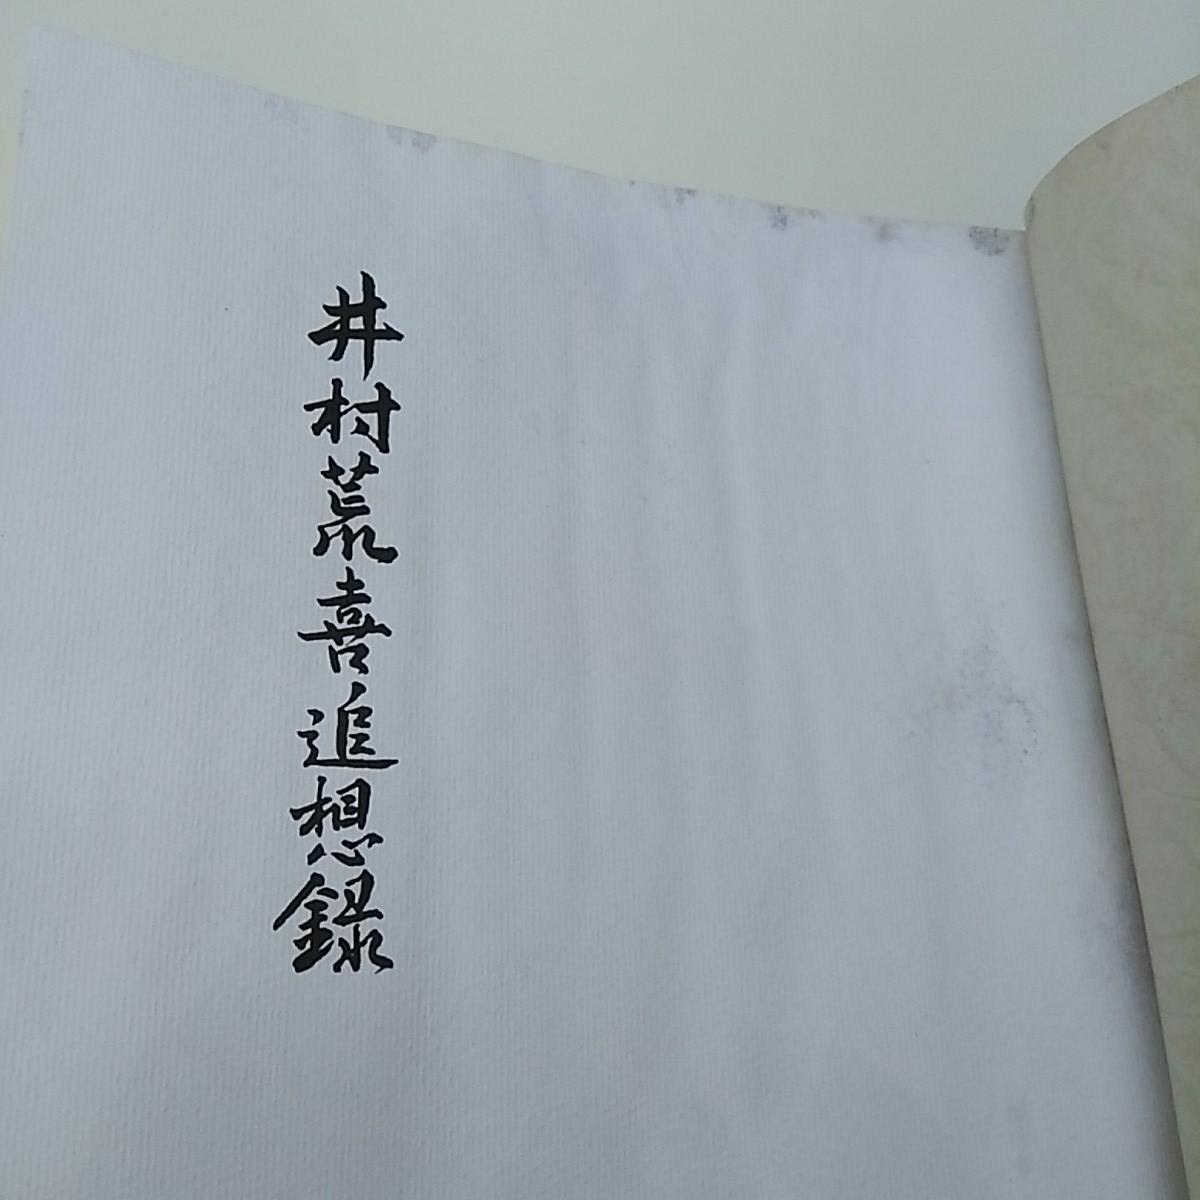 井村荒喜追想録